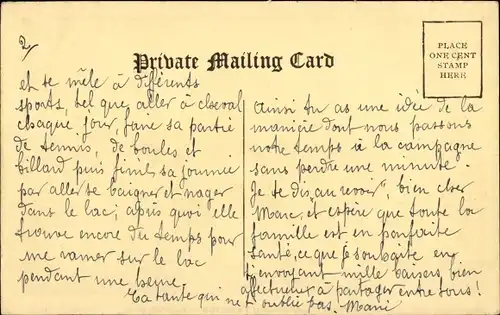 2/
Private Mailing Card
PLACE
ONE CENT
STAMP
HERE
et se mêle à différents
sports, tel que aller à cheval
chaque jour, faire sa partie
de tennis, de boules et
billard puis finit sa journée
par aller se baigner et nager
dans le lac; après quoi elle
trouve encore du temps pour
me ramer sur le lac
pendant une heure.
ainsi tu as une idée de la
manière dont nous passons
notre temps à la campagne
sans perdre une minute.
Je te dis "au revoir", bien cher
Marc, et espère que toute la
famille est en parfaite
santé, ce que je souhaite en
t'envoyant mille baisers, bien
affectueux à partager entre tous!
Ta tante qui ne t'oublie pas. Mani